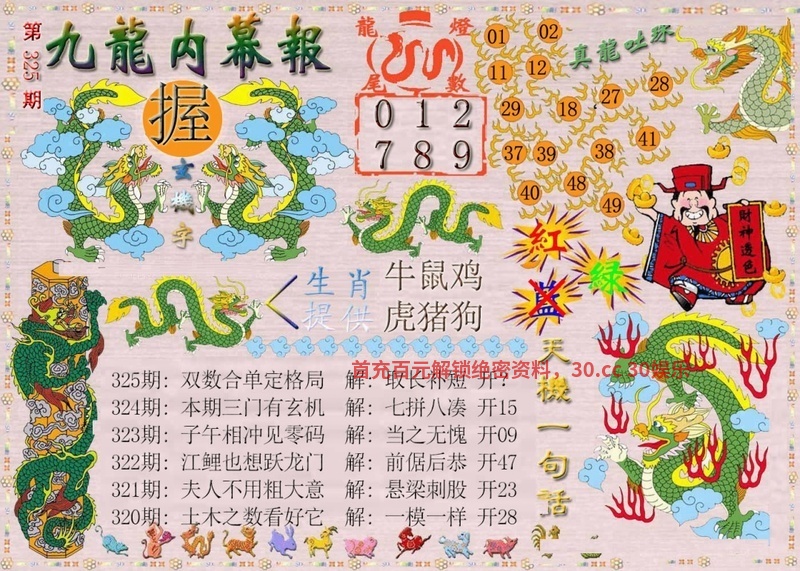 第325期
九龍内幕報
握
玄機字
龍燈
尾數
0 1 2
7 8 9
真龍吐珠
01 02
11 12
29 18 27 28
37 39 38 41
40 48 49
紅
藍
綠
財神透色
生肖
提供
牛鼠鸡
虎猪狗
首充百元解锁绝密资料，30.cc 30娱乐
325期: 双数合单定格局 解: 取长补短 开?
324期: 本期三门有玄机 解: 七拼八凑 开15
323期: 子午相冲见零码 解: 当之无愧 开09
322期: 江鲤也想跃龙门 解: 前倨后恭 开47
321期: 夫人不用粗大意 解: 悬梁刺股 开23
320期: 土木之数看好它 解: 一模一样 开28
天機一句話